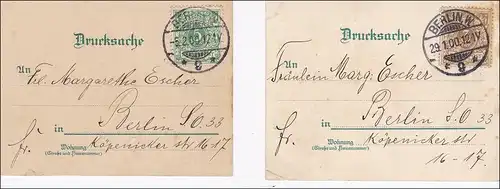 Drucksache
BERLIN W.
9
An
Frl. Margarethe Escher
Berlin S.O. 33
fr.
in
Köpenicker str 16-17.
Wohnung
(Straße und Hausnummer)
Drucksache
BERLIN W.
29.1.00.12-1V
9
An
Fräulein Marg. Escher
Berlin S.O. 33
in
fr.
Köpenicker str
Wohnung
(Straße und Hausnummer)
16-17.